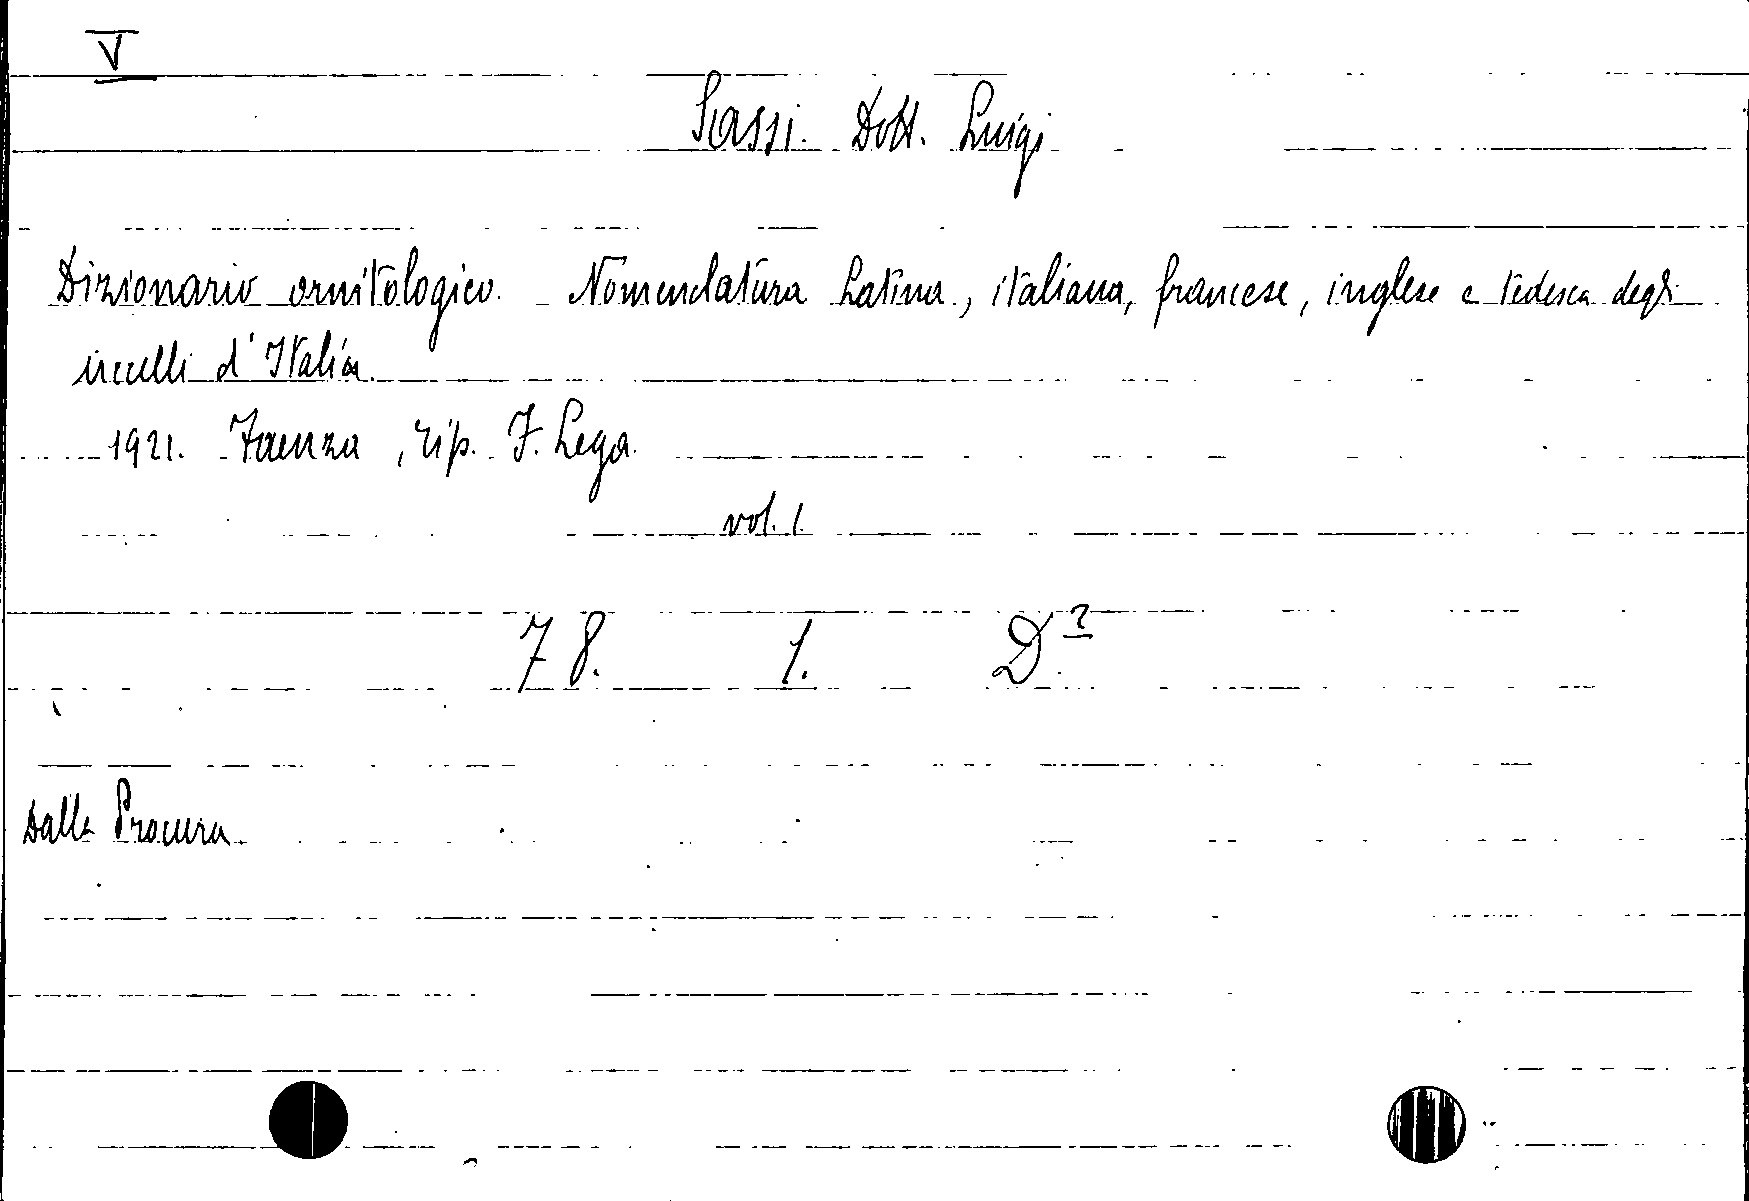 V
Sassi. Dott. Luigi
Dizionario ornitologico. - Nomenclatura Latina, italiana, francese, inglese e tedesca degli
uccelli d'Italia.
1921. Faenza, tip. F. Lega.
vol. 1.
78. 1. D.2
Dalla Procura